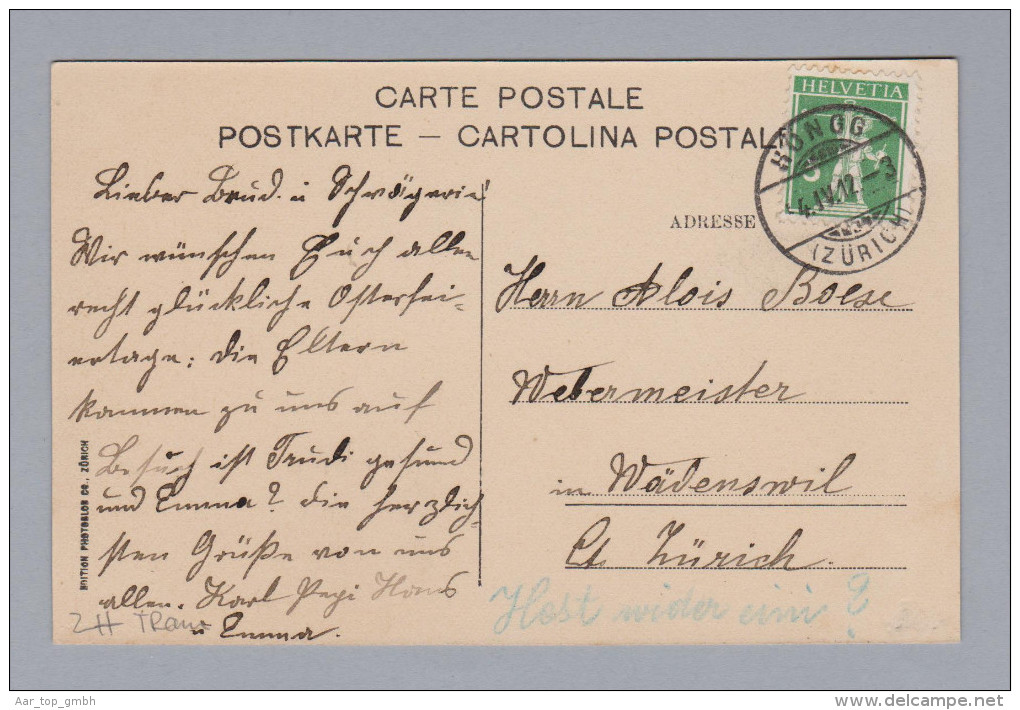 CARTE POSTALE
POSTKARTE — CARTOLINA POSTALE
HELVETIA
HÖNGG
4.IV.12.–3
(ZÜRICH)
Lieber Brud. u Schwägerin!
Wir wünschen Euch allen
recht glückliche Osterfei-
ertage: die Eltern
kommen zu uns auf
Besuch ist Trudi gesund
und Emma? die herzlich-
sten Grüße von uns
allen. Karl Pepi Hans
u Emma.
ADRESSE
Herrn Alois Boese
Webermeister
in Wädenswil
Ct. Zürich.
Host wider eini?
EDITION PHOTOGLOB CO., ZÜRICH
ZH
Aar_top_gmbh
www.delcampe.net